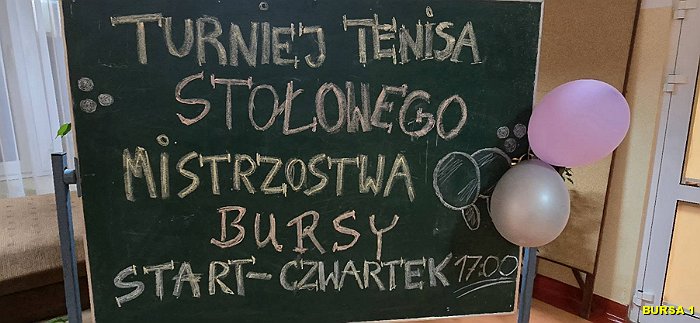 TURNIEJ TENISA
STOŁOWEGO
MISTRZOSTWA
BURSY
START-CZWARTEK 17:00
BURSA 1